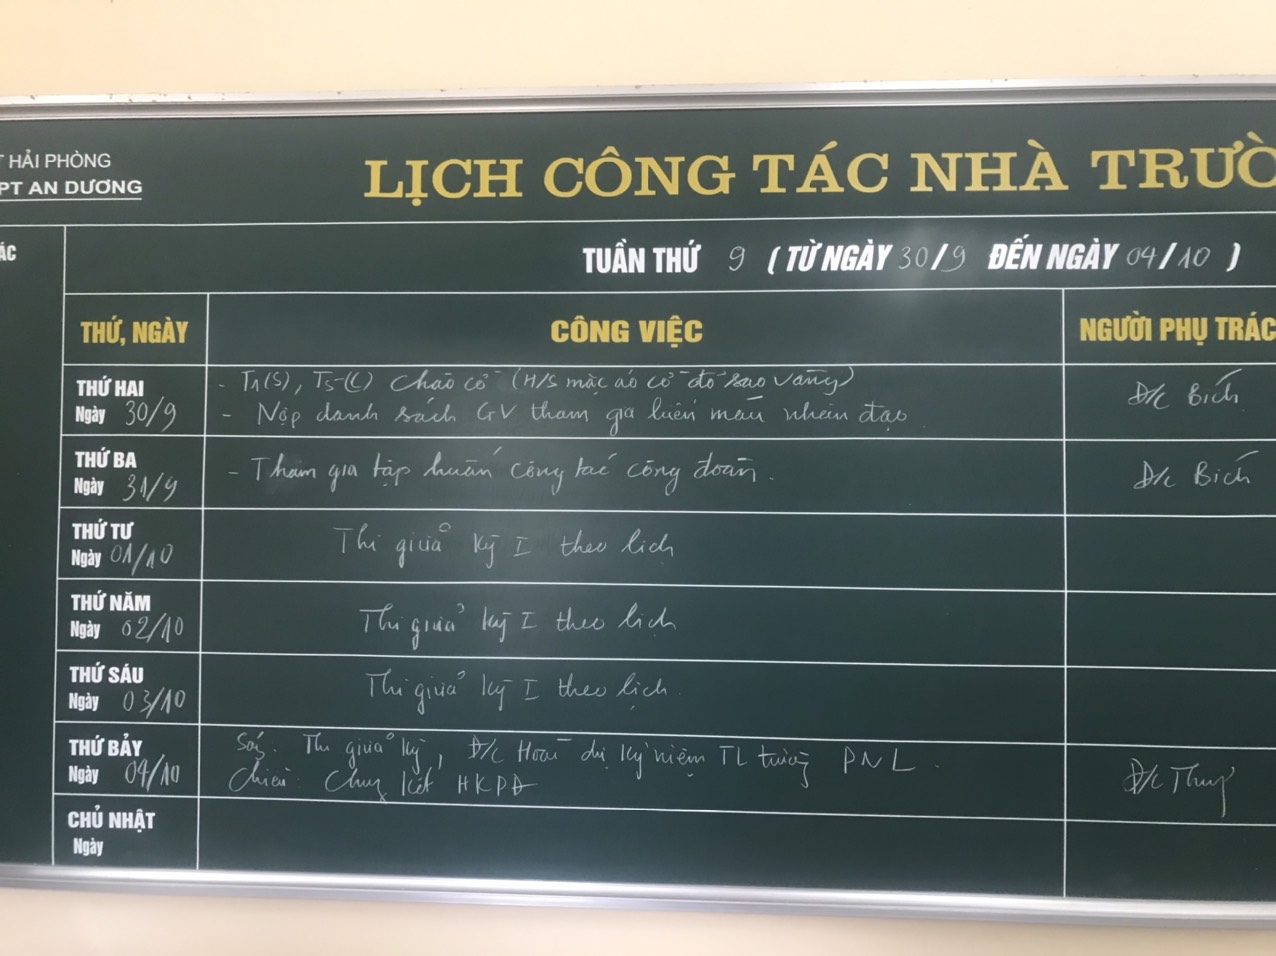 T HẢI PHÒNG
PT AN DƯƠNG
LỊCH CÔNG TÁC NHÀ TRƯỜ
ÁC
TUẦN THỨ 9 ( TỪ NGÀY 30/9 ĐẾN NGÀY 04/10 )
THỨ, NGÀY
CÔNG VIỆC
NGƯỜI PHỤ TRÁC
THỨ HAI
Ngày 30/9
- T1(S), T5-(C) Chào cờ (H/S mặc áo cờ đỏ sao vàng)
- Nộp danh sách GV tham gia hiến máu nhân đạo
Đ/c Bích
THỨ BA
Ngày 31/9
- Tham gia tập huấn công tác công đoàn.
Đ/c Bích
THỨ TƯ
Ngày 01/10
Thi giữa kỳ I theo lịch
THỨ NĂM
Ngày 02/10
Thi giữa kỳ I theo lịch
THỨ SÁU
Ngày 03/10
Thi giữa kỳ I theo lịch
THỨ BẢY
Ngày 04/10
Sáng: Thi giữa kỳ, Đ/c Hoài dự kỷ niệm TL trường PNL.
Chiều: Chung kết HKPĐ
Đ/c Thuý
CHỦ NHẬT
Ngày